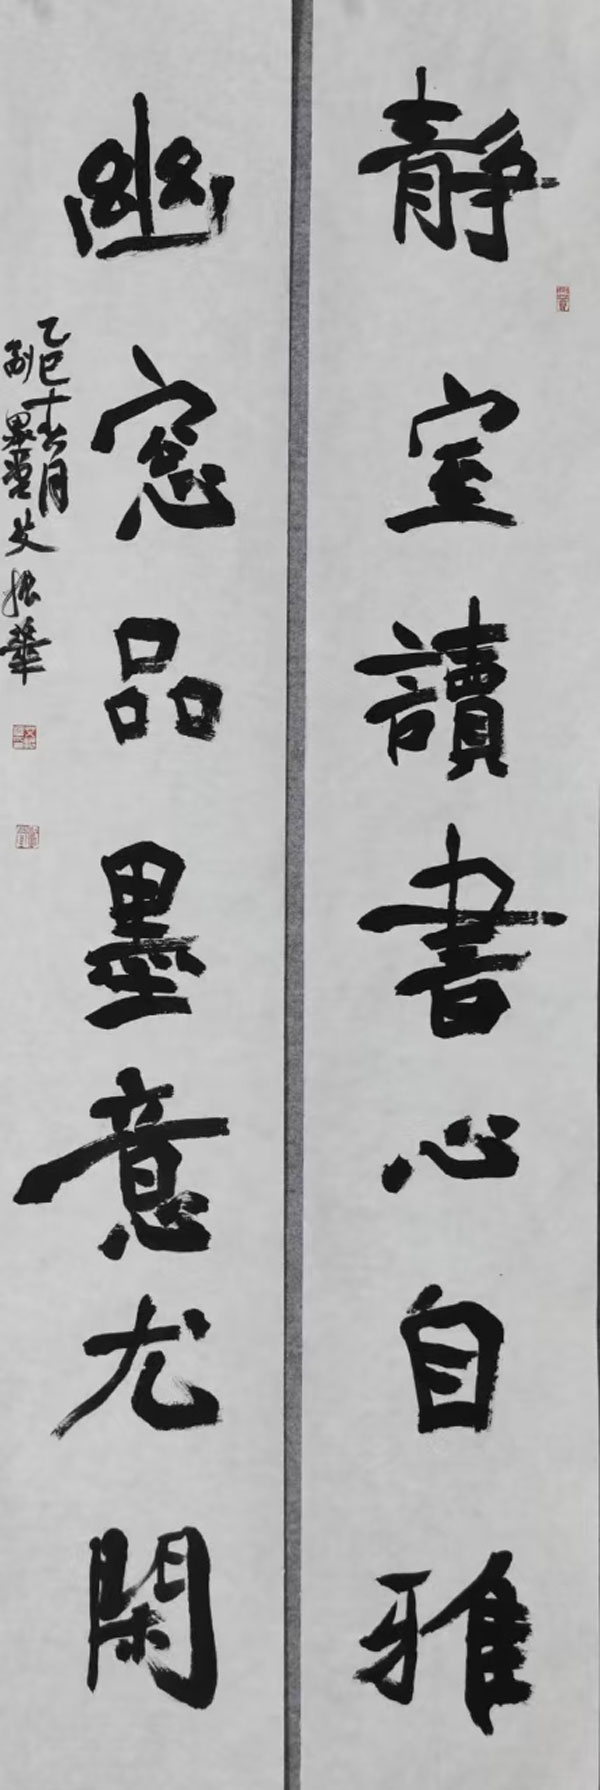 靜室讀書心自雅
幽窓品墨意尤閑
乙巳十月
墨堂艾振華